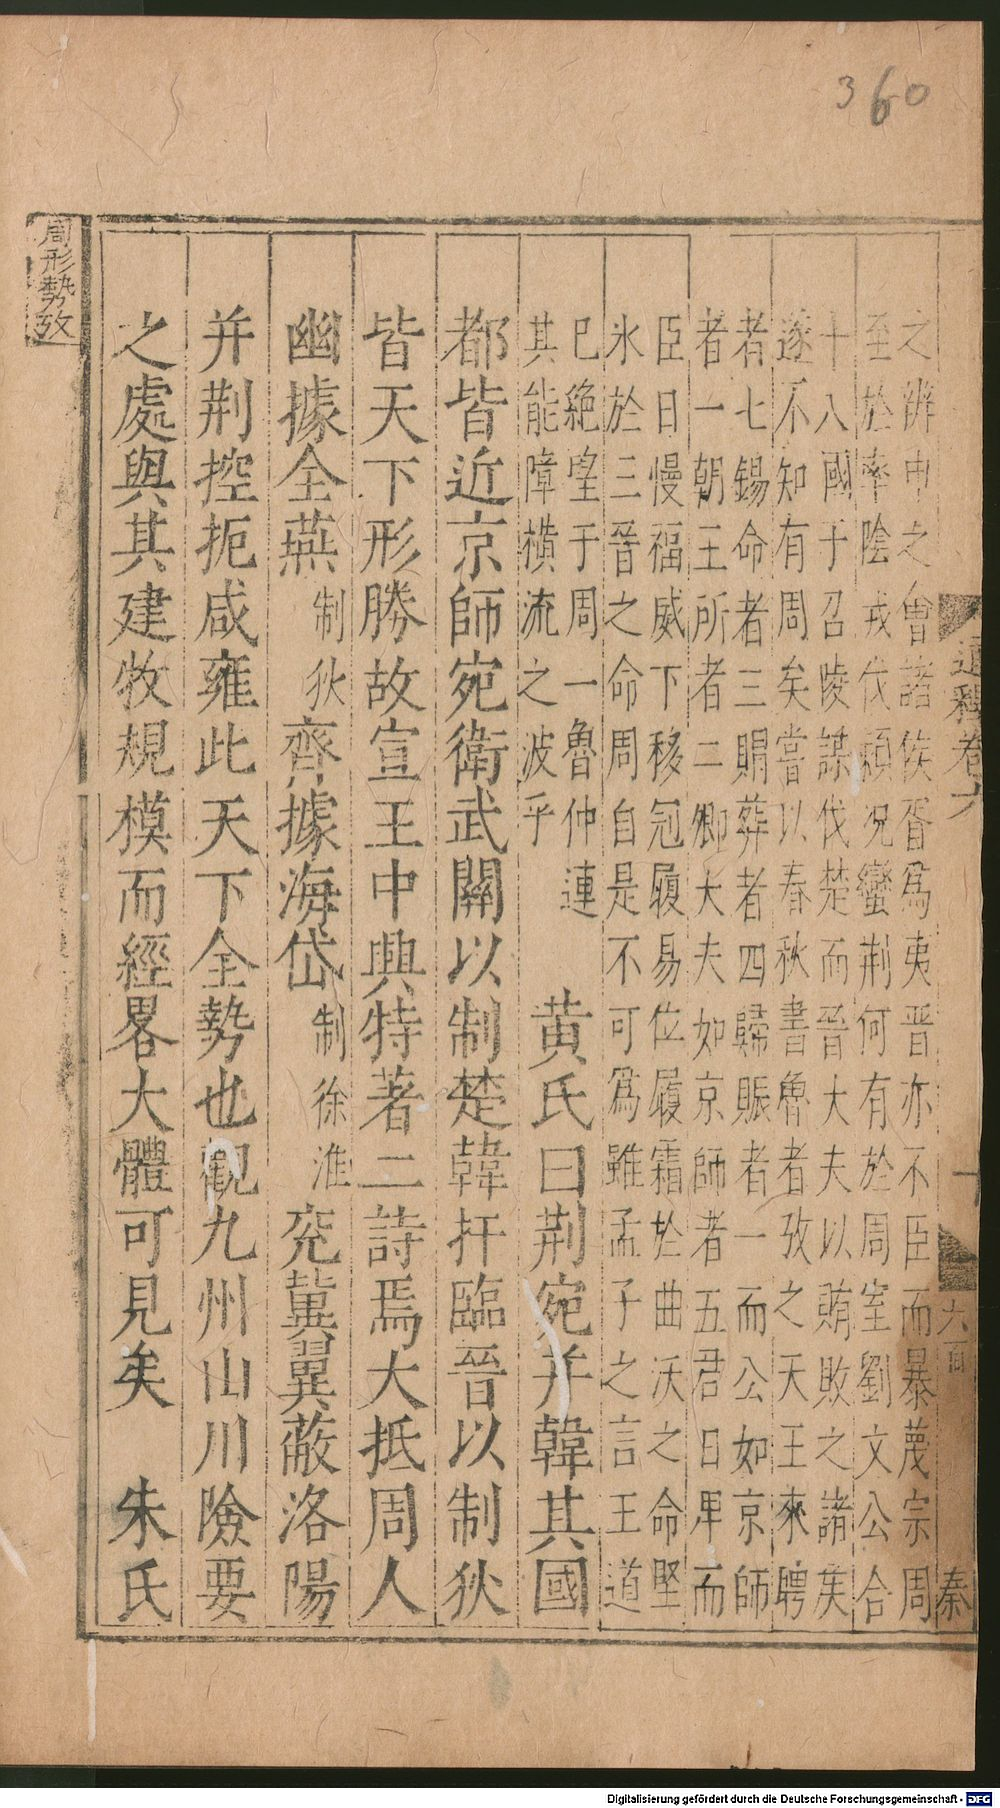 360
周形勢攷
通釋卷六
十
六百
秦
之辨申之會諸侯胥爲夷晋亦不臣而暴蔑宗周
至於率陰戎伐潁况蠻荆何有於周室劉文公合
十八國于召陵謀伐楚而晉大夫以賄敗之諸矦
遂不知有周矣嘗以春秋書魯者攷之天王來聘
者七錫命者三賵葬者四歸賑者一而公如京師
者一朝王所者二卿大夫如京師者五君日卑而
臣日慢福威下移冠履易位履霜於曲沃之命堅
氷於三晉之命周自是不可爲雖孟子之言王道
已絶望于周一魯仲連
其能障橫流之波乎
黄氏曰荆宛并韓其國
都皆近京師宛衛武關以制楚韓扞臨晉以制狄
皆天下形勝故宣王中興特著二詩焉大抵周人
幽據全燕制狄齊據海岱制徐淮兖冀翼蔽洛陽
并荆控扼咸雍此天下全勢也觀九州山川險要
之處與其建牧規模而經畧大體可見矣 朱氏
Digitalisierung gefördert durch die Deutsche Forschungsgemeinschaft - DFG